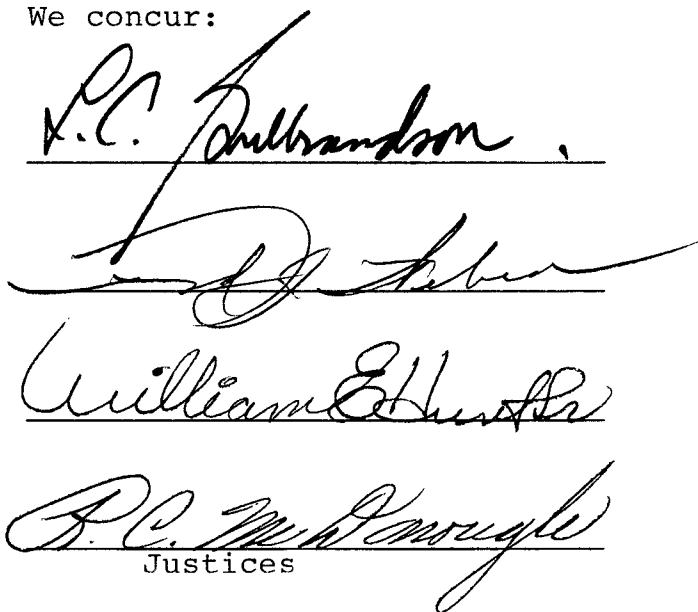 We concur:
L.C. Gulbrandson .
William E Hunt Sr
R. C. McDonough
Justices